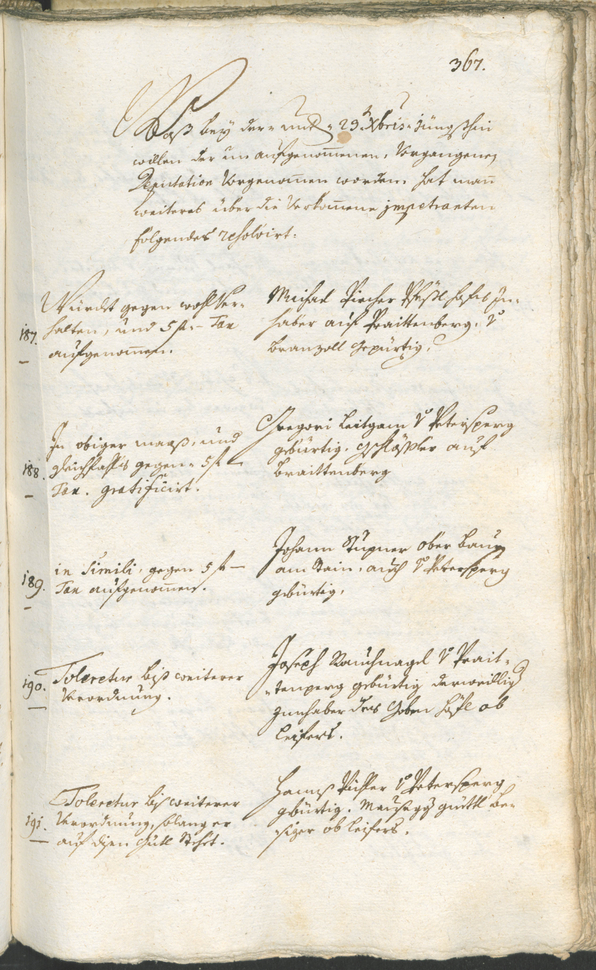 367.
Waß bey der undt 23. Xbris jüngsthin
willen der un aufgenommenen, Vorgangenen
Deputation Vorgenommen worden. hat man
weiteres über die Verkommene impetranten
folgendes resolvirt.
187.
Würdt gegen wohlver-
halten, und 5 f Tax
aufgenommen.
Michael Pircher In-
haber auf Praittenberg, V
branzoll gepürtig.
188
In obiger maaß, und
gleichfalls gegen 5 f
Tax. gratificirt.
Gregori Leitgam V Petersperg
gebürtig, auf
Braittenberg
189.
in Simili, gegen 5 f
Tax aufgenommen.
Johann Stuger ober baur
am Rain, auch V Petersperg
gebürtig.
190.
Toleretur biß weiterer
Verordnung.
Joseph Rauchnagel V Prait-
tenperg gebürtig, derweillig
Innhaber des Höfl ob
Leifers.
191.
Toleretur bis weiterer
Verordnung, solang er
auf disen guetl stehet.
Hanns Pichler V Petersperg
gebürtig, güettl be-
sizer ob Leifers.